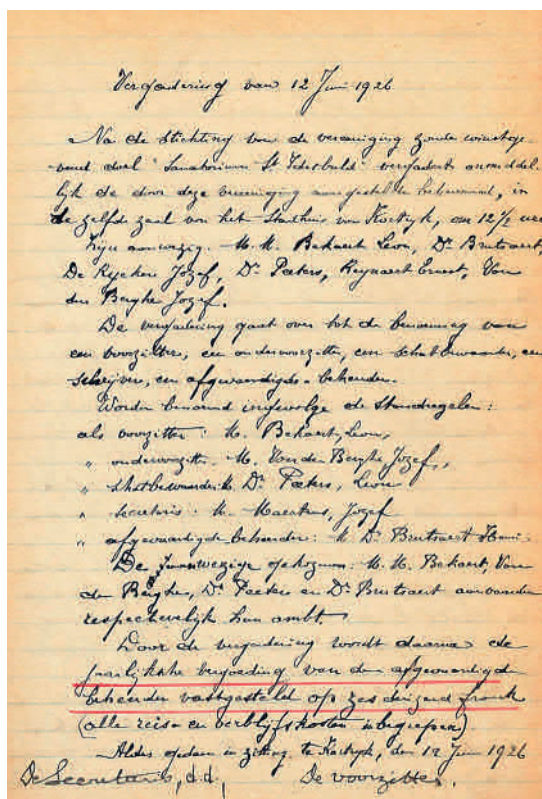 Vergadering van 12 Juni 1926
Na de stichting van de vereeniging zonder winstge-
vend doel "Sanatorium St Idesbald" vergadert onmiddel-
lijk de door deze vereeniging aangestelde beheerraad, in
de zelfde zaal van het Stadhuis van Kortryk, om 12 1/2 ure
Zijn aanwezig: M.M. Bekaert Leon, Dr Brutsaert,
De Ryckere Jozef, Dr Peeters, Reynaert Ernest, Van
den Berghe Jozef.
De vergadering gaat over tot de benoeming van
een voorzitter, een ondervoorzitter, een schatbewaarder, een
schrijver, een afgevaardigde-beheerder.
Worden benoemd ingevolge de standregelen:
als voorzitter: M. Bekaert, Leon,
" ondervoorzitter: M. Van den Berghe Jozef,
" schatbewaarder: M. Dr Peeters, Leon
" secretaris: M. Maertens, Jozef
" afgevaardigde beheerder: M Dr Brutsaert Henri.
De aanwezige gekozenen: M.M. Bekaert, Van
den Berghe, Dr Peeters en Dr Brutsaert aanvaarden
respectievelijk hun ambt.
Door de vergadering wordt daarna de
jaarlijksche vergoeding van den afgevaardigd
beheerder vastgesteld op zes duizend frank
(alle reis en verblijfskosten inbegrepen)
Aldus gedaan in zitting te Kortryk, den 12 Juni 1926
De Secretaris, d.d., De voorzitter.